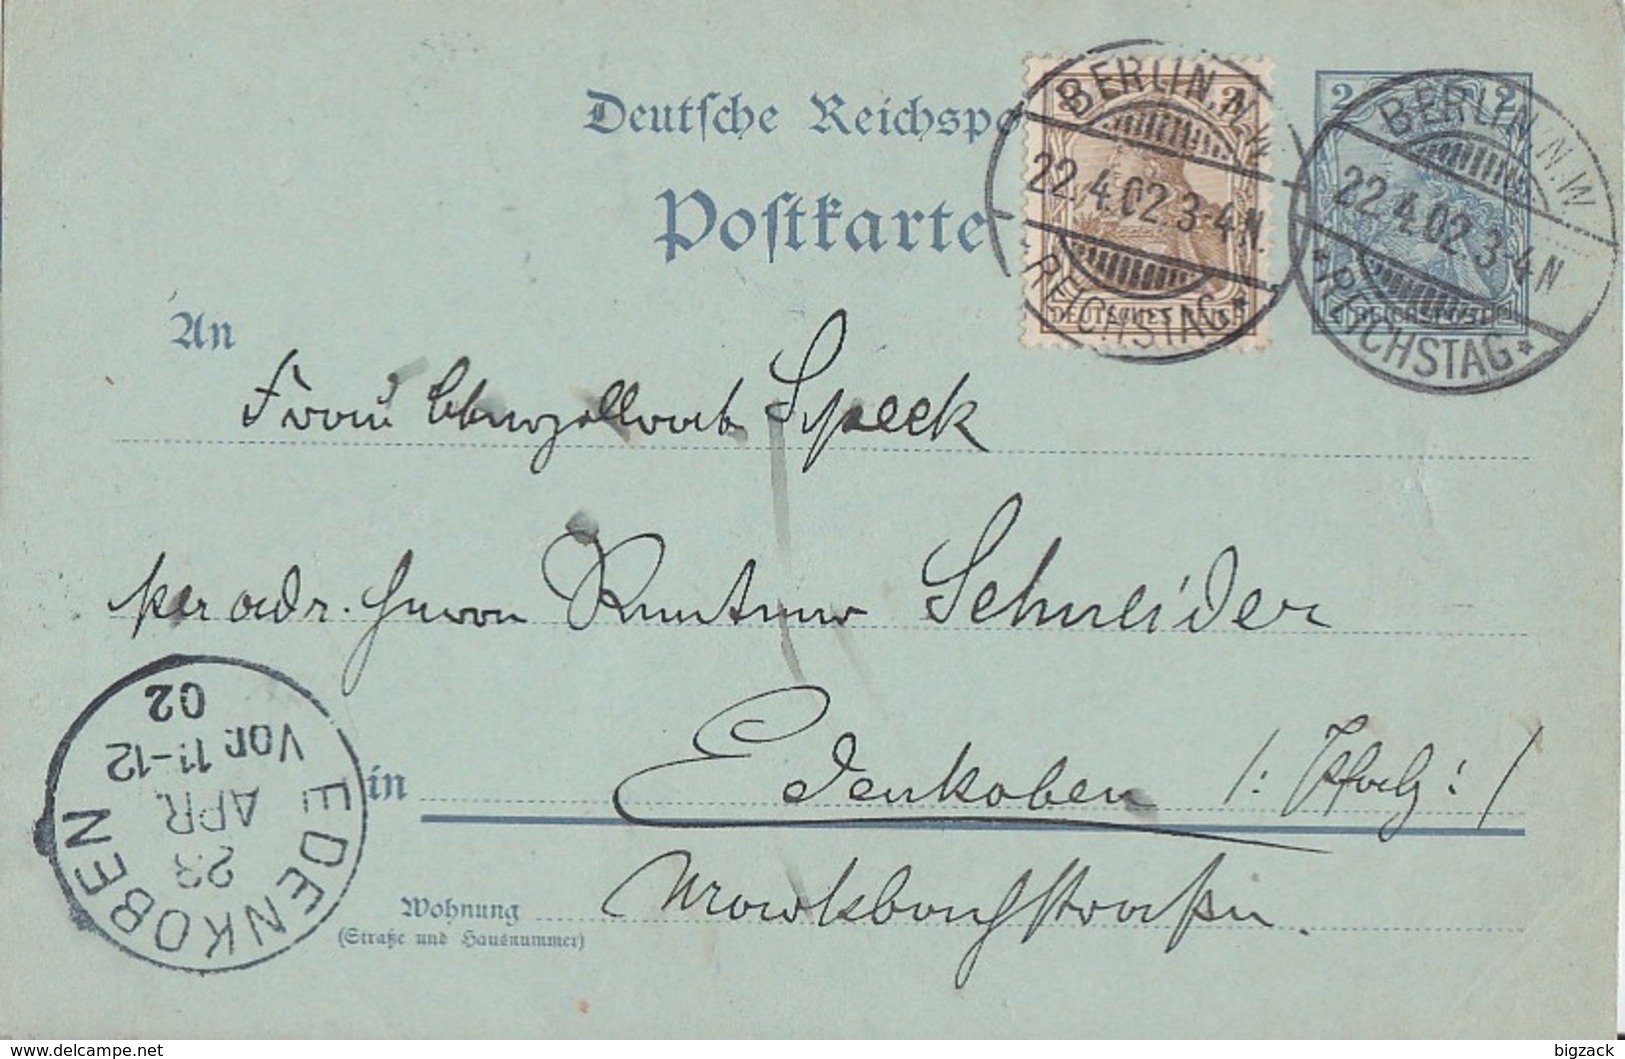 Deutsche Reichspo
Postkarte
2 2
DEUTSCHES REICH
BERLIN, N.W.
22.4.02.3-4N.
* REICHSTAG *
2 2
REICHSPOST
BERLIN, N.W.
22.4.02.3-4N.
* REICHSTAG *
An
Frau Oberzollrat Speck
per adr. Herrn Rentner Schneider
in Edenkoben /: Pfalz :/
Wohnung
(Straße und Hausnummer)
EDENKOBEN
23
APR.
Vor. 11-12
02
delcampe.net
bigzack